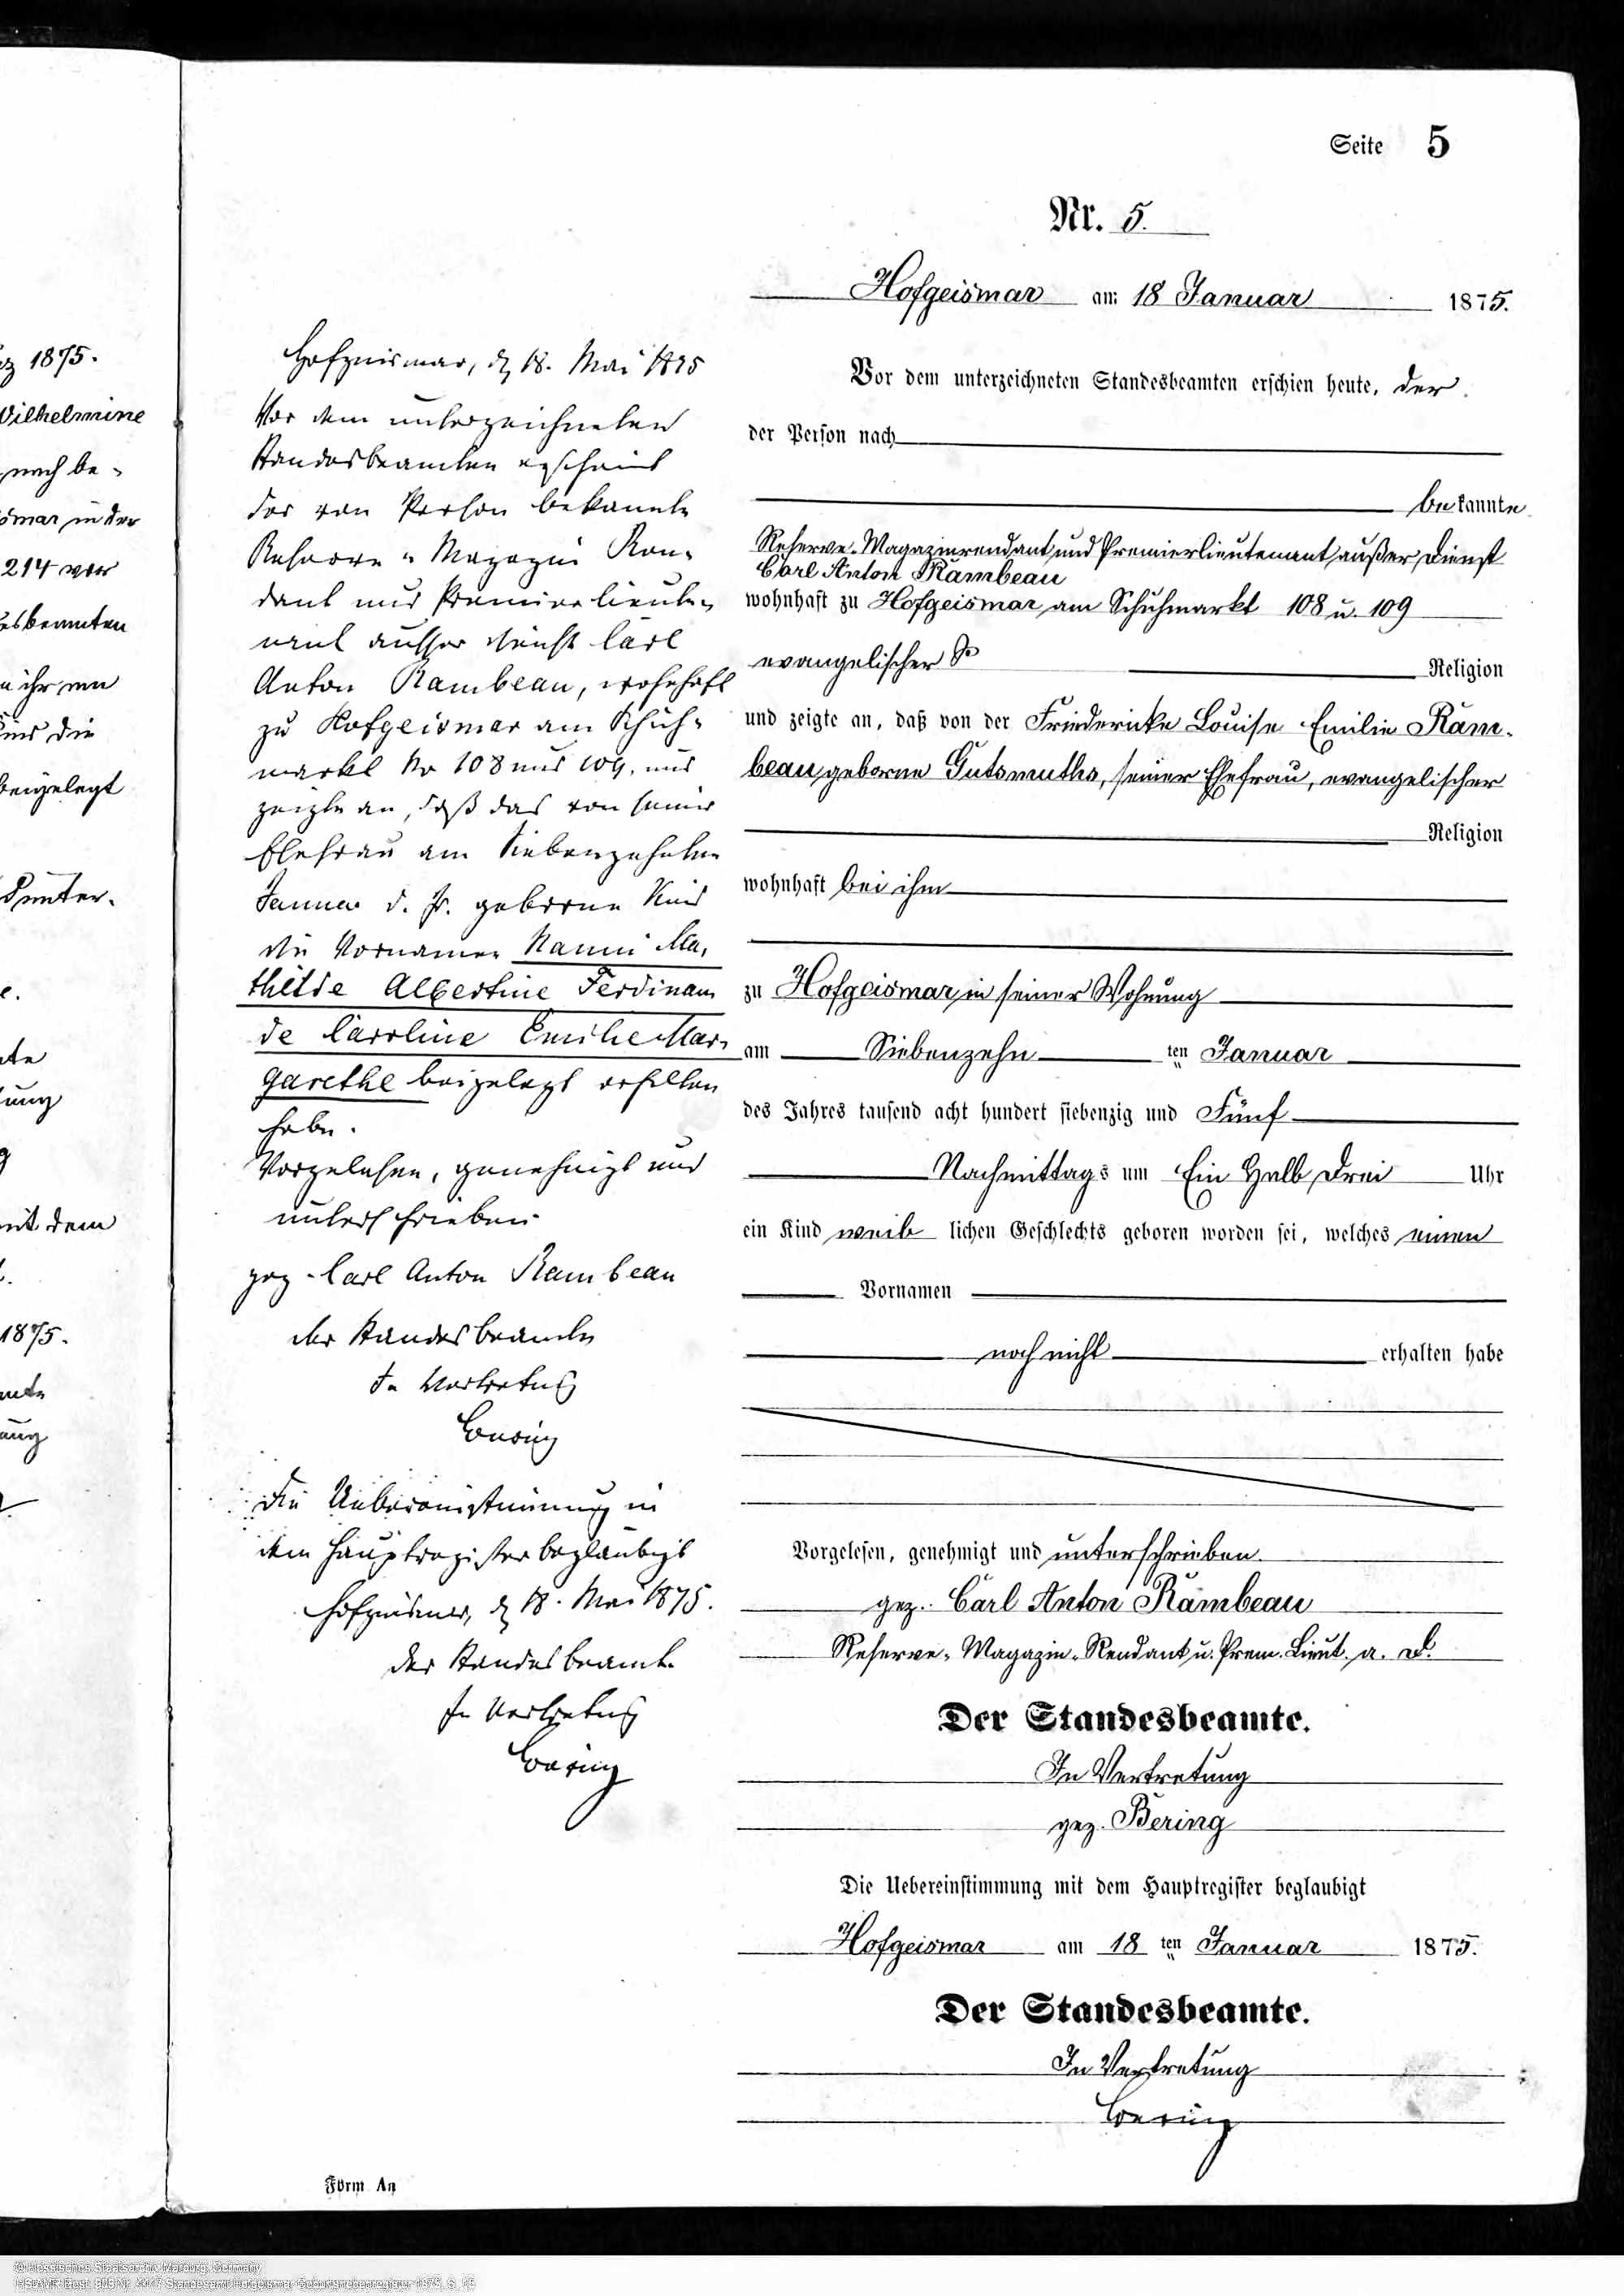 Seite 5
Nr. 5.
Hofgeismar am 18 Januar 1875.
Vor dem unterzeichneten Standesbeamten erschien heute, der
der Person nach
bekannte
Reserve-Magazinrendant und Premierlieutenant außer Dienst
Carl Anton Rambeau
wohnhaft zu Hofgeismar am Schuhmarkt 108 u. 109
evangelischer Religion
und zeigte an, daß von der Friedericke Louise Emilie Ram-
beau geborne Gutsmuths, seiner Ehefrau, evangelischer
Religion
wohnhaft bei ihm
zu Hofgeismar, in seiner Wohnung
am Siebenzehn ten Januar
des Jahres tausend acht hundert siebenzig und Fünf
Nachmittags um Ein Halb Drei Uhr
ein Kind weiblichen Geschlechts geboren worden sei, welches einen
Vornamen
noch nicht erhalten habe
Vorgelesen, genehmigt und unterschrieben.
gez. Carl Anton Rambeau
Reserve-Magazin-Rendant u. Prem. Lieut. a. D.
Der Standesbeamte.
In Vertretung
gez. Bering
Die Uebereinstimmung mit dem Hauptregister beglaubigt
Hofgeismar am 18 ten Januar 1875.
Der Standesbeamte.
In Vertretung
Bering
Hofgeismar, d. 18. Mai 1875
Vor dem unterzeichneten
Standesbeamten erscheint
der von Person bekannte
Reserve-Magazin Ren-
dant und Premierlieute-
nant ausser Dienst Carl
Anton Rambeau, wohnhaft
zu Hofgeismar am Schuh-
markt No 108 und 109. und
zeigte an, daß das von seiner
Ehefrau am Siebenzehnten
Januar d. Js. geborene Kind
die Vornamen Nanni Ma-
thilde Albertine Ferdinan
de Caroline Emilie Mar-
garethe beigelegt erhalten
habe.
Vorgelesen, genehmigt und
unterschrieben
gez. Carl Anton Rambeau
Der Standesbeamte
In Vertretung
Bering
Die Uebereinstimmung in
dem Hauptregister beglaubigt
Hofgeismar, d. 18. Mai 1875.
Der Standesbeamte
In Vertretung
Bering
Form An
1875.
Wilhelmine
nach be-
in der
214 vor
esbeamten
ihr
die
beigelegt
unter-
mit dem
1875.
Hessisches Staatsarchiv Marburg, Germany